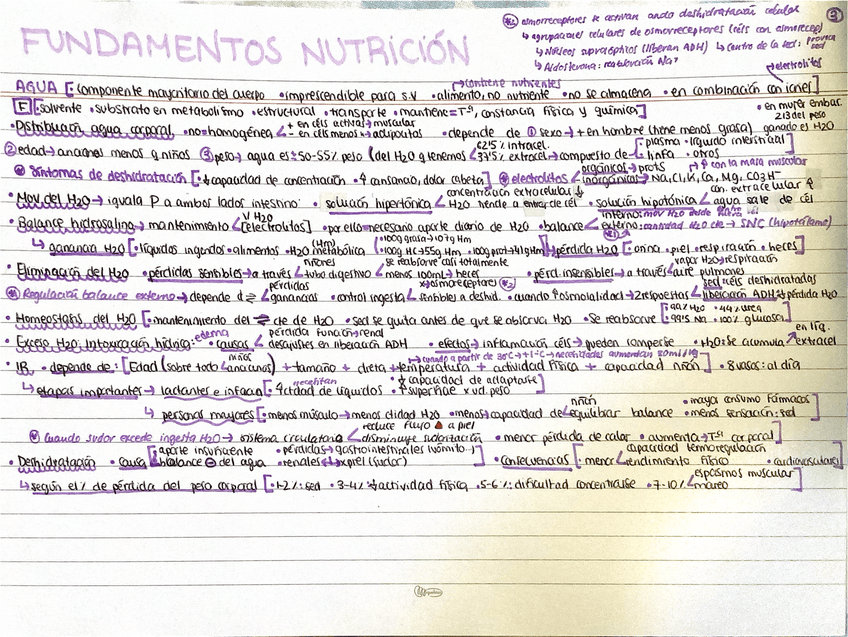 *2 osmorreceptores se activan cndo deshidratación celular
3
↳ agrupaciones celulares de osmorreceptores (céls con osmorecep)
↳ Núcleos supraópticos (liberan ADH) ↳ Centro de la sed: provoca sed
↳ Aldosterona: reabsorción Na+
FUNDAMENTOS NUTRICIÓN
→ contiene nutrientes
electrolitos
AGUA [• componente mayoritario del cuerpo • imprescindible para s.v • alimento, no nutriente • no se almacena • en combinación con iones]
F [• solvente • substrato en metabolismo • estructural • transporte • mantiene = Tª, constancia física y química]
• en mujer embar. 2/3 del peso ganado es H2O
• Distribución agua corporal • no = homogénea < + en céls activas → muscular - en céls menos → adipocitos • depende de ① sexo → + en hombre (tiene menos grasa)
② edad → ancianos menos q niños ③ peso → agua es ± 50-55% peso (del H2O q tenemos < 62'5% intracel. 37'5% extracel → compuesto de [• plasma • líquido intersticial • linfa • otros]
• Síntomas de deshidratación [• ↓ capacidad de concentración • ↑ cansancio, dolor cabeza] • electrolitos < orgánicos → prots inorgánicos → Na, Cl, K, Ca, Mg, CO3H-
↑ con la masa muscular
• Mov. del H2O → iguala P a ambos lados intestino • solución hipertónica < concentración extracelular ↓ H2O tiende a entrar de cél • solución hipotónica < con. extracelular ↑ agua sale de cél
• Balance hidrosalino → mantenimiento < V H2O [electrolitos] • por ello necesario aporte diario de H2O • balance < interno: mov H2O desde externo: cantidad H2O de → SNC (hipotálamo)
↳ ganancia H2O [• líquidos ingeridos • alimentos • H2O metabólica (Hm) (• 100g grasa → 107g Hm • 100g HC → 55g Hm • 100g prot → 41g Hm)] pérdida H2O [• orina • piel • respiración • heces]
• Eliminación del H2O • pérdidas sensibles → a través < riñones → se reabsorve casi totalmente tubo digestivo < menos 100mL → heces • pérd. insensibles → a través < vapor H2O → respiración aire pulmones
*1 Regulación balance externo → depende d < pérdidas ganancias • control ingesta < osmorreceptores *2 sensibles a deshid. • cuando ↑ osmolalidad → 2 respuestas < sed: si es deshidratadas liberación ADH: ↓ pérdida H2O
• Homeostasis del H2O [• mantenimiento del cte de H2O • sed se quita antes de que se absorva H2O • Se reabsorve [• 99% H2O • 44% urea • 99'5% Na • 100% glucosa]
• Exceso H2O: Intoxicación hídrica: edema • causas < pérdida función renal desajustes en liberación ADH • efectos → inflamación céls → pueden romperse • H2O se acumula ↗ en líq. extracel
• IR • depende de: [Edad (sobre todo < niños ancianos) + tamaño + dieta + temperatura + actividad física + capacidad riñón] • 8 vasos: al día
↳ cuando a partir de 38°C → +1°C → necesidades aumentan
↳ etapas importantes → lactantes e infancia [• necesitan ↑ ctdad de líquidos • ↓ capacidad de adaptarse • ↑ superficie x ud. peso]
↳ personas mayores [• menos músculo → menos ctdad H2O • menos capacidad de < riñón equilibrar balance • mayor consumo fármacos • menos sensación: sed]
• Cuando sudor excede ingesta H2O → sistema circulatorio < reduce flujo a piel disminuye sudoración • menor pérdida de calor • aumenta → Tª corporal]
• Deshidratación • causa [• aporte insuficiente • balance ⊖ del agua • pérdidas → gastrointestinales (vómito..) • renales • x piel (sudor)] • consecuencias [• menor < capacidad termorregulación rendimiento físico • cardiovasculares]
↳ según el % de pérdida del peso corporal [• 1-2%: sed • 3-4%: ↓ actividad física • 5-6%: dificultad concentrarse • 7-10% < espasmos muscular mareo]